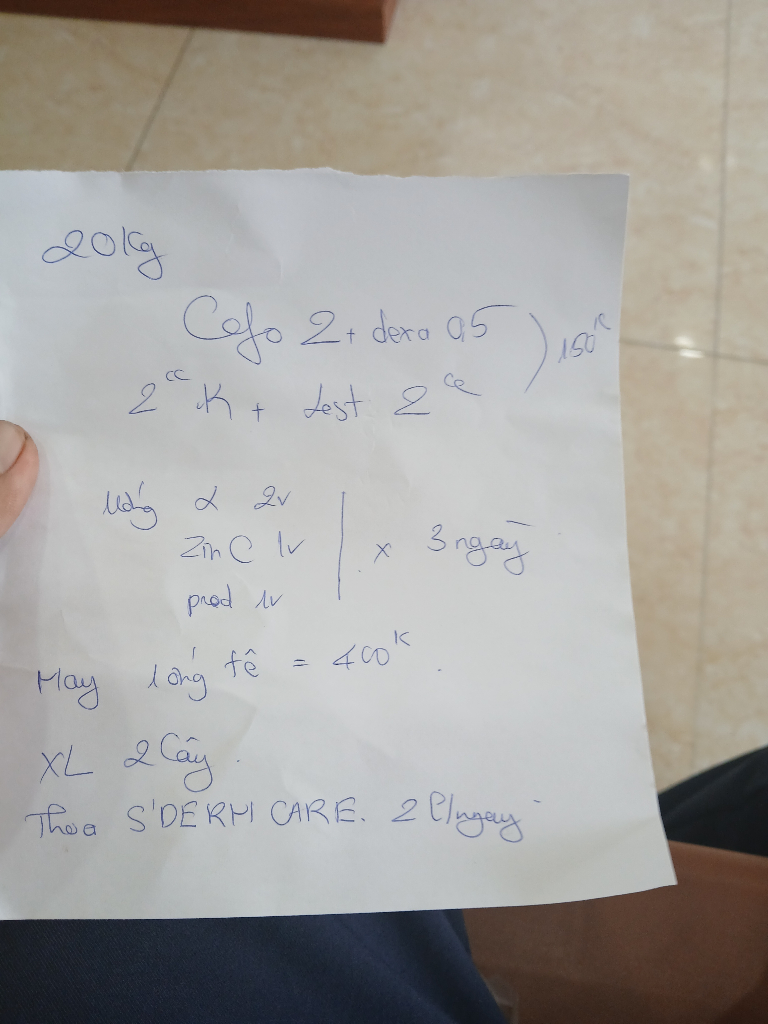 20Kg
Cefo 2 + dexa 0,5 ) 150K
2cc K + test 2cc
Uống α 2v
ZinC 1v | x 3 ngày
pred 1v
May lóng tê = 400K.
XL 2 Cây.
Thoa S'DERM CARE. 2 l/ngày